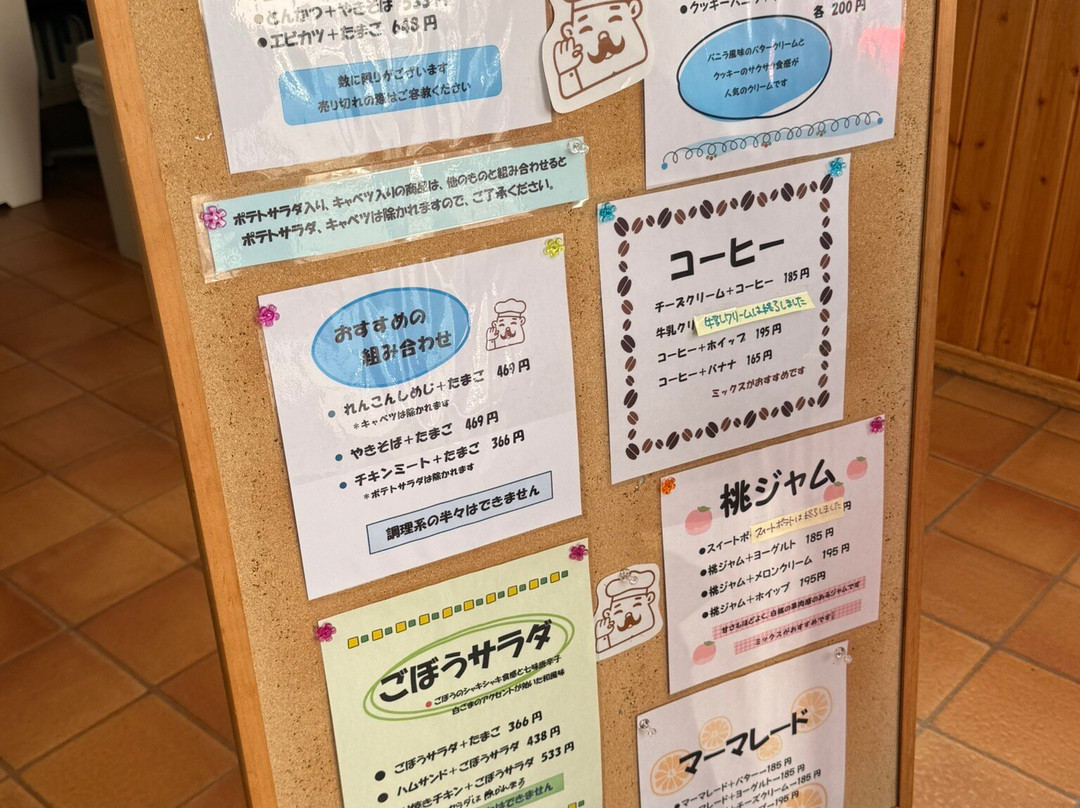 とんかつ+やきそば 533円
●エビカツ+たまご 648円
数に限りがございます
売り切れの際はご容赦ください
各 200円
バニラ風味のバタークリームと
クッキーのサクサク食感が
人気のクリームです
ポテトサラダ入り、キャベツ入りの商品は、他のものと組み合わせると
ポテトサラダ、キャベツは除かれますので、ご了承ください。
おすすめの
組み合わせ
●れんこんしめじ+たまご 469円
*キャベツは除かれます
●やきそば+たまご 469円
●チキンミート+たまご 366円
*ポテトサラダは除かれます
調理系の半々はできません
コーヒー
チーズクリーム+コーヒー 185円
牛乳クリ
牛乳クリームは終了しました
コーヒー+ホイップ 195円
コーヒー+バナナ 165円
ミックスがおすすめです
桃ジャム
●スイートポ 円
スイートポテトは終了しました
●桃ジャム+ヨーグルト 185円
●桃ジャム+メロンクリーム 195円
●桃ジャム+ホイップ 195円
甘さもほどよく、白桃の果肉感のあるジャムです
ミックスがおすすめです!
ごぼうサラダ
●ごぼうのシャキシャキ食感と七味唐辛子
白ごまのアクセントが効いた和風味
●ごぼうサラダ+たまご 366円
●ハムサンド+ごぼうサラダ 438円
焼きチキン+ごぼうサラダ 533円
サラダは除かれます
はできません
マーマレード
●マーマレード+バター 185円
●マーマレード+ヨーグルト 185円
マーマレード+チーズクリーム 185円
195円